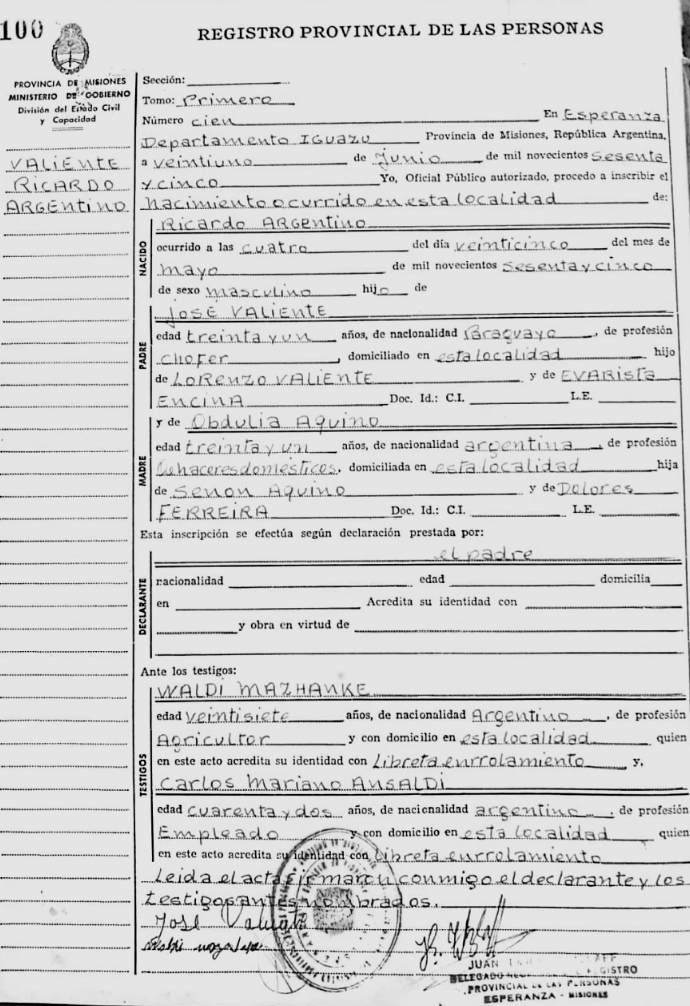 100
REGISTRO PROVINCIAL DE LAS PERSONAS
PROVINCIA DE MISIONES
MINISTERIO DE GOBIERNO
División del Estado Civil
y Capacidad
VALIENTE
RICARDO
ARGENTINO
Sección:
Tomo: Primero
Número cien En Esperanza
Departamento IGUAZU Provincia de Misiones, República Argentina,
a veintiuno de Junio de mil novecientos sesenta
y cinco Yo, Oficial Público autorizado, procedo a inscribir el
nacimiento ocurrido en esta localidad de:
NACIDO
Ricardo ARGENTINO
ocurrido a las cuatro del día veinticinco del mes de
mayo de mil novecientos sesenta y cinco
de sexo masculino hijo de
PADRE
JOSÉ VALIENTE
edad treinta y un años, de nacionalidad Paraguayo, de profesión
chofer, domiciliado en esta localidad hijo
de LORENZO VALIENTE y de EVARISTA
ENCINA Doc. Id.: C.I. L.E.
MADRE
y de Obdulia Aquino
edad treinta y un años, de nacionalidad argentina, de profesión
Quehaceres domésticos, domiciliada en esta localidad hija
de Senon Aquino y de Dolores
FERREIRA Doc. Id.: C.I. L.E.
Esta inscripción se efectúa según declaración prestada por:
el padre
DECLARANTE
nacionalidad edad domicilia
en Acredita su identidad con
y obra en virtud de
Ante los testigos:
TESTIGOS
WALDI MAZHANKE
edad veintisiete años, de nacionalidad Argentino, de profesión
Agricultor y con domicilio en esta localidad quien
en este acto acredita su identidad con Libreta enrrolamiento y,
Carlos Mariano ANSALDI
edad cuarenta y dos años, de nacionalidad argentino, de profesión
Empleado y con domicilio en esta localidad quien
en este acto acredita su identidad con Libreta enrrolamiento
Leida el acta firman conmigo el declarante y los
testigos antes nombrados.
José Valiente
JUAN
PROVINCIAL DE LAS PERSONAS
ESPERANZA - MISIONES